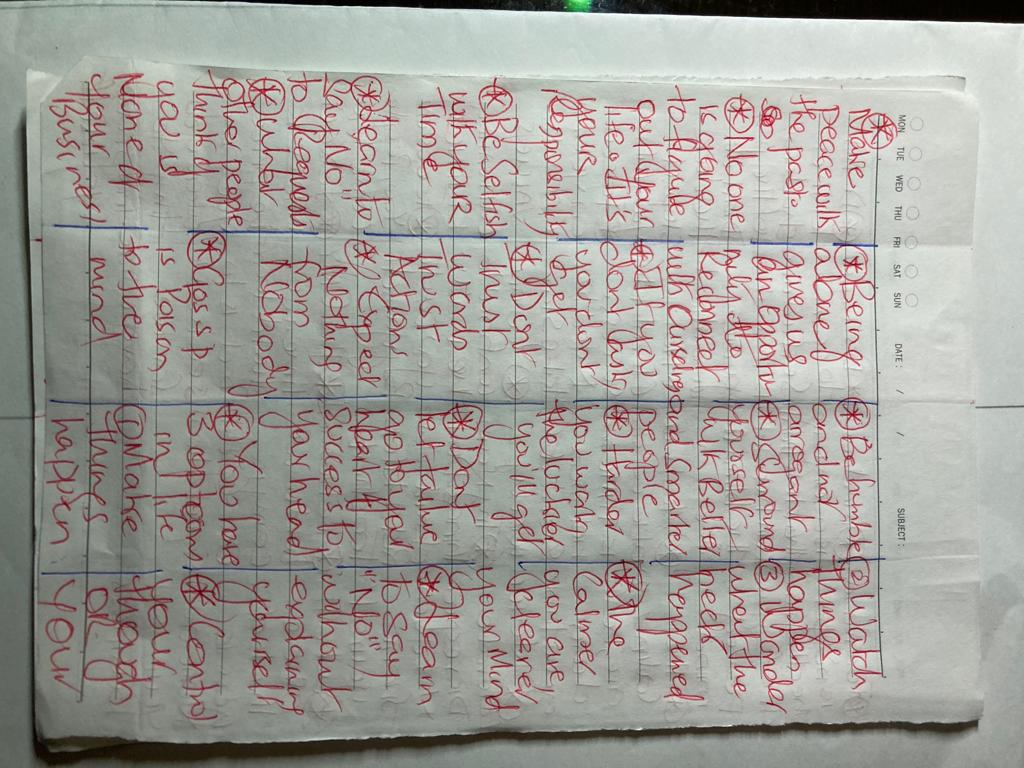 MON TUE WED THU FRI SAT SUN DATE : / / SUBJECT :
Make
peace with
the past.
So
No one
is going
to figure
out your
life. It's
your
Responsibility
Be Selfish
with your
Time
Learn to
Say No"
to Requests
what
other people
think of
you is
None of
your
Business
Being
alone
gives us
an Opportu
nity to
Reconnect
with Ourselves
If you
dont ask,
you dont
get
Dont
Trust
words
Trust
Actions
Expect
Nothing
from
Nobody
Gossip
is Poison
to the
mind
Be humble
and not
arrogant
Surround
yourself
with Better
and Smarter
people
Harder
you work,
the luckier
you'll get
Dont
let failure
go to your
heart &
success to
your head
You have
3 optoons
in life
① Make
things
happen
② Watch
things
happen
③ Wonder
what the
heck
happened
The
Calmer
you are,
cleerer
your Mind
Learn
to say
"No"
without
explaining
yourself
Control
your
though
OR
your